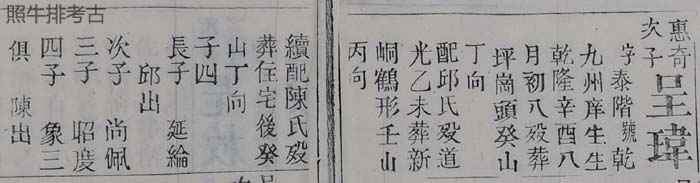 照牛排考古
惠奇
次子
呈瑋
字泰階號乾
九州庠生生
乾隆辛酉八
月初八歿葬
坪崗頭癸山
丁向
配邱氏歿道
光乙未葬新
峒鶴形壬山
丙向
續配陳氏歿
葬住宅後癸
山丁向
子四
長子 延綸
邱出
次子 尚佩
三子 昭虔
四子 象三
俱 陳出